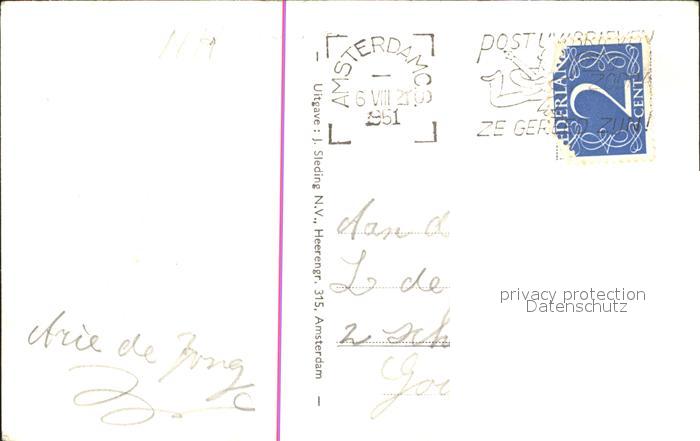 AMSTERDAM CS
6 VIII 21
1951
POST UW BRIEVEN
ZE GER
NEDERLAND
2
CENT
– Uitgave : J. Sleding N.V., Heerengr. 315, Amsterdam –
Aan d
L de
2 sch
Gou
Arie de Jong
privacy protection
Datenschutz